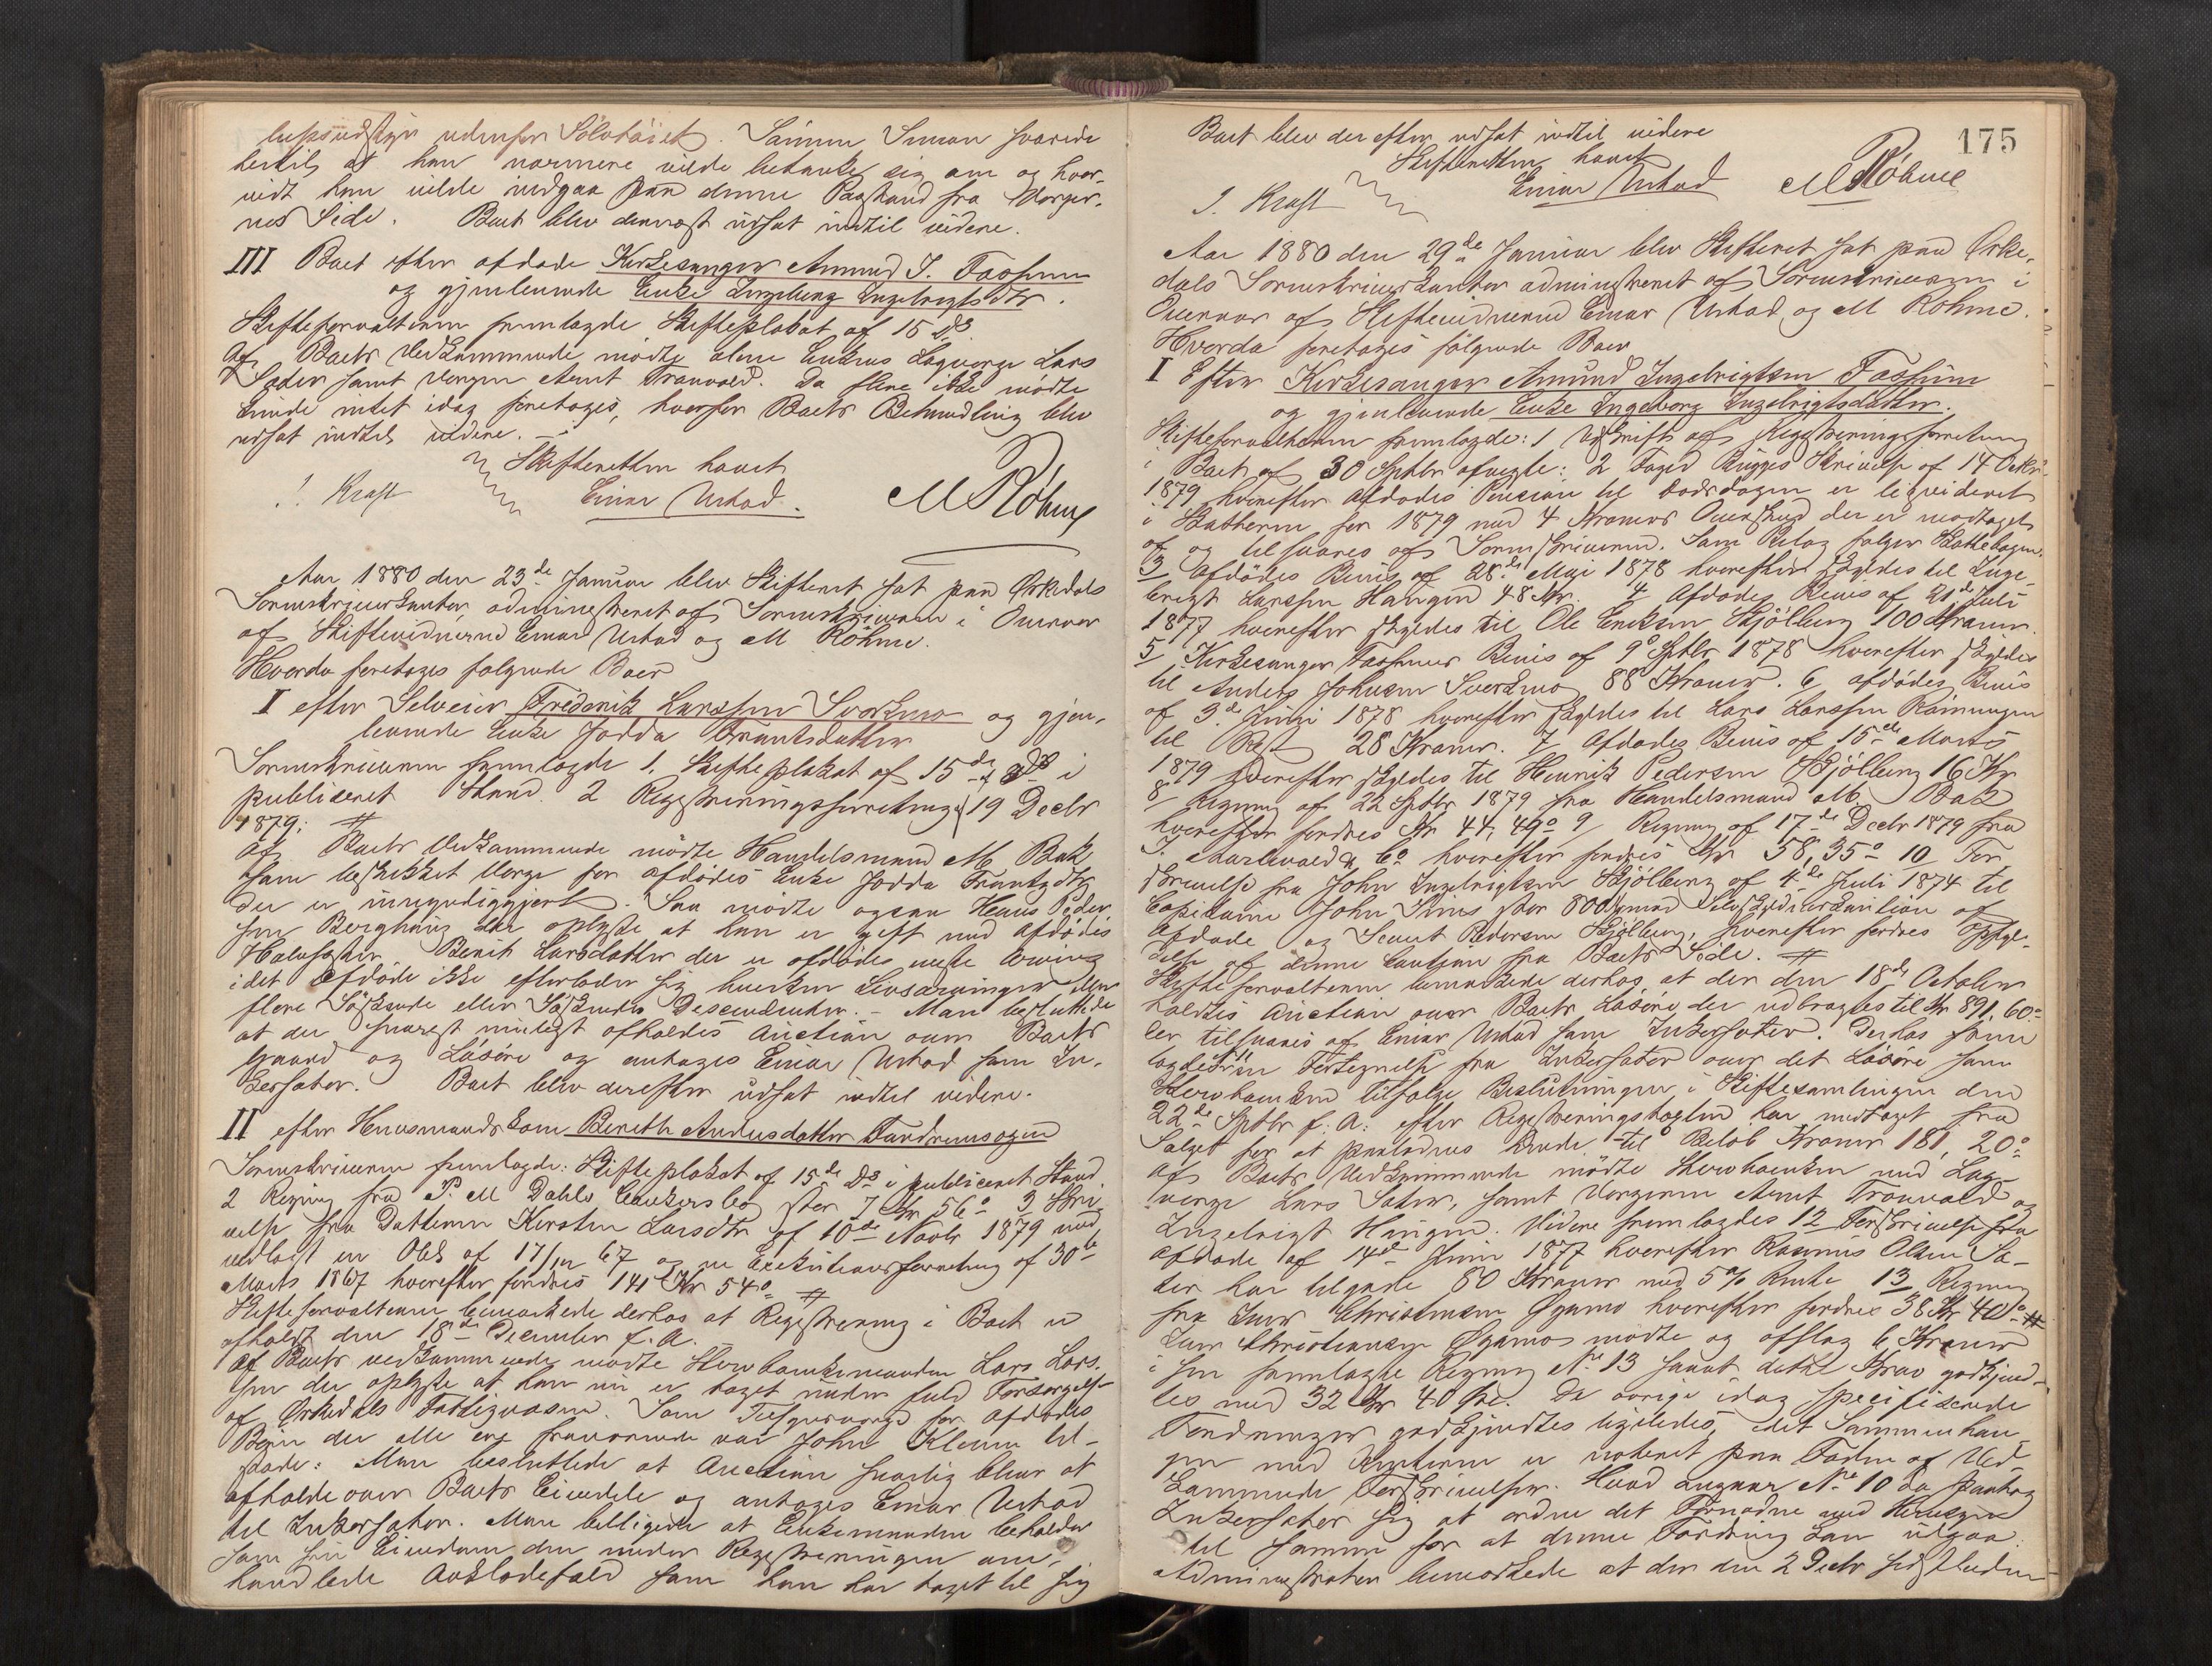 udenfor Sølvtøiet. Samme Simon svarede
hertil at han nærmere vilde betænke sig om og hvor-
vidt han vilde indgaa paa denne Paastand fra Verger-
nes Side. Boet blev dernæst udsat indtil videre.
III Boet efter afdøde Kirkesanger Amund I. Fossum
og gjenlevende Enke Ingeborg Ingebrigtsdtr.
Skifteforvalteren fremlagde Skifteplakat af 15 ds.
Af Boets Vedkommende mødte alene Enkens Laugverge Lars
Sæter samt Vergen Arnt Tranvold. Da flere ikke mødte
kunde intet idag foretages, hvorfor Boets Behandling blev
udsat indtil videre.
Skifteretten hævet
I. Kraft Einar Urstad. M Røhme
Aar 1880 den 23de Januar blev Skifteret sat paa Orkedals
Sorenskriverkontor, administreret af Sorenskriveren i Overvær
af Skiftevidnerne Einar Urstad og M Röhme.
Hvorda foretoges følgende Boer
I efter Selveier Frederik Larssen Svorkmo og gjen-
levende Enke Jodda Frantsdatter
Sorenskriveren fremlagde 1. Skifteplakat af 15de ds i
publiceret Stand. 2 Registreringsforretning 19 Decbr
1879:
Af Boets Vedkommende mødte Handelsmand M. Bak
som beskikket Verge for afdødes Enke Jodda Frantzdtr
der er umyndiggjort. Saa mødte ogsaa Hans Peder-
sen Berghaug der oplyste at han er gift med Afdødes
Halvsøster Berit Larsdatter der er afdødes neste Arving
idet Afdøde ikke efterlader sig hverken Livsarvinger eller
flere Södskende eller Södskendes Descendenter. - Man besluttede
at der snarest muligt afholdes Auction over Boets
Gaard og Løsøre og antoges Einar Urstad som In-
kassator. Boet blev derefter udsat indtil videre.
II efter Huusmandskone Bereth Andersdatter Sundremsøien
Sorenskriveren fremlagde: Skifteplakat af 15de ds i publiceret Stand
2 Regning fra P. M Dahls Enkersbo stor 7 Kr 56 o 3 Skri-
velse fra Datteren Kirsten Larsdtr af 10de Novbr 1879 med
vedlagt en Obl. af 17/12 67 og en Executionsforretning af 30te
Marts 1867 hvorefter fordres 141 Kr 54 o
Skifteforvalteren bemærkede derhos at Registrering i Boet er
afholdt den 18de December f. A.
Af Boets vedkommende mødte Sterbboenkemanden Lars Lars-
sen der oplyste at han nu er taget under fuld Forsørgelse
af Orkedals Fattigvæsen. Som for Afdødes
Børn der alle ere fraværende var John Klemme til-
stede: Man besluttede at Auction snarlig blev at
afholde over Boets Eiendele og antoges Einar Urstad
til Inkassator. Man billigede at Enkemanden beholder
som sin Eiendom den under Registreringen om-
handlede som han har taget til sig
175
Boet blev derefter udsat indtil videre
Skifteretten hævet
I. Kraft Einar Urstad M Röhme
Aar 1880 den 29de Januar blev Skifteret sat paa Orke-
dals Sorenskriverkontor administreret af Sorenskriveren i
Overvær af Skiftevidnerne Einar Urstad og M Röhme.
Hvorda foretoges følgende Boer
I Efter Kirkesanger Amund Ingebrigtsen Fossum
og gjenlevende Enke Ingeborg Ingebrigtsdatter.
Skifteforvalteren fremlagde: 1 Udskrift af Registreringsforretning
i Boet af 30 Septbr afvigte: 2 Foged Rygges Skrivelse af 14 Octbr
1879 hvorefter Afdødes Pension til Dødsdagen er liqvideret
i Skatterne for 1879 med 4 Kroners Overskud der er modtaget
af og tilsvares af Sorenskriveren. Som Bilag følger Skattebogen.
3 Afdödes Beviis af 28de Mai 1878 hvorefter skyldes til Inge-
brigt Larssen Haugen 48 Kr. 4 Afdødes Bevis af 21de Juli
1877 hvorefter skyldes til Ole Eriksen Skjölberg 100 Kroner.
5 Kirkesanger Fossums Bevis af 9de Septbr 1878 hvorefter skyldes
til Anders Johnsen Svorkmo 88 Kroner. 6, afdødes Bevis
af 3de Juni 1878 hvorefter skyldes til Lars Larssen Ramungen
til Rest 28 Kroner. 7, Afdødes Bevis af 15de Marts
1879 hvorefter skyldes til Henrik Pedersen Skjölberg 16 Kr
8 Regning af 22 Septbr 1879 fra Handelsmand M. Bak
hvorefter fordres Kr 44, 49 o 9 Regning af 17de Decbr 1879 fra
I. & Co hvorefter fordres Kr 58, 35 o 10 For-
skrivelse fra John Ingebrigtsen Skjölberg af 4de Juli 1874 til
Capitaine John Sims stor 800 med Selvskyldnerkaution af
Afdøde og Sivert Pedersen Skjölberg, hvorefter fordres Opfyl-
delse af denne Caution fra Boets Side.
Skifteforvalteren bemærkede derhos at der den 18de October
holdtes Auction over Boets Løsøre, der udbragtes til Kr 891, 60 o
der tilsvares af Einar Urstad som Inkassator. Derhos frem
lagdes 11 Fortegnelse fra Inkassator over det Løsøre som
Sterbboenken tilfølge Beslutningen i Skiftesamlingen den
22de Septbr f. A. efter Registreringstaxten har undtaget fra
Salget for at til Beløb Kroner 181, 20 o
Af Boets Vedkommende mødte Sterbboenken med Laug-
verge Lars Sæter, samt Vergerne Arnt Tronvold og
Ingebrigt Haugen. Videre fremlagdes 12 Forskrivelse fra
Afdøde af 14de Juni 1877 hvorefter Rasmus Olsen Sæ-
ter har tilgode 80 Kroner med 5 % Rente 13 Regning
fra Iver Christensen Øyamo hvorefter fordres 38 Kr 40 o
Iver Christiansen Øyamo mødte og afslog 6 Kroner
i sin fremlagte Regning No 13 samt dette Krav godkjend-
tes med 32 Kr 40 Øre. De øvrige idag specificerede
Fordringer godkjendtes ligeledes, idet Sammenhæn-
gen med Renterne er noteret paa Foden af Ved-
kommende Forskrivelser. Hvad angaar No 10 da paatog
Inkassator sig at ordne det Fornødne med Hensyn
til samme for at denne Fordring kan udgaa.
Administrator bemærkede at der den 2 Decbr